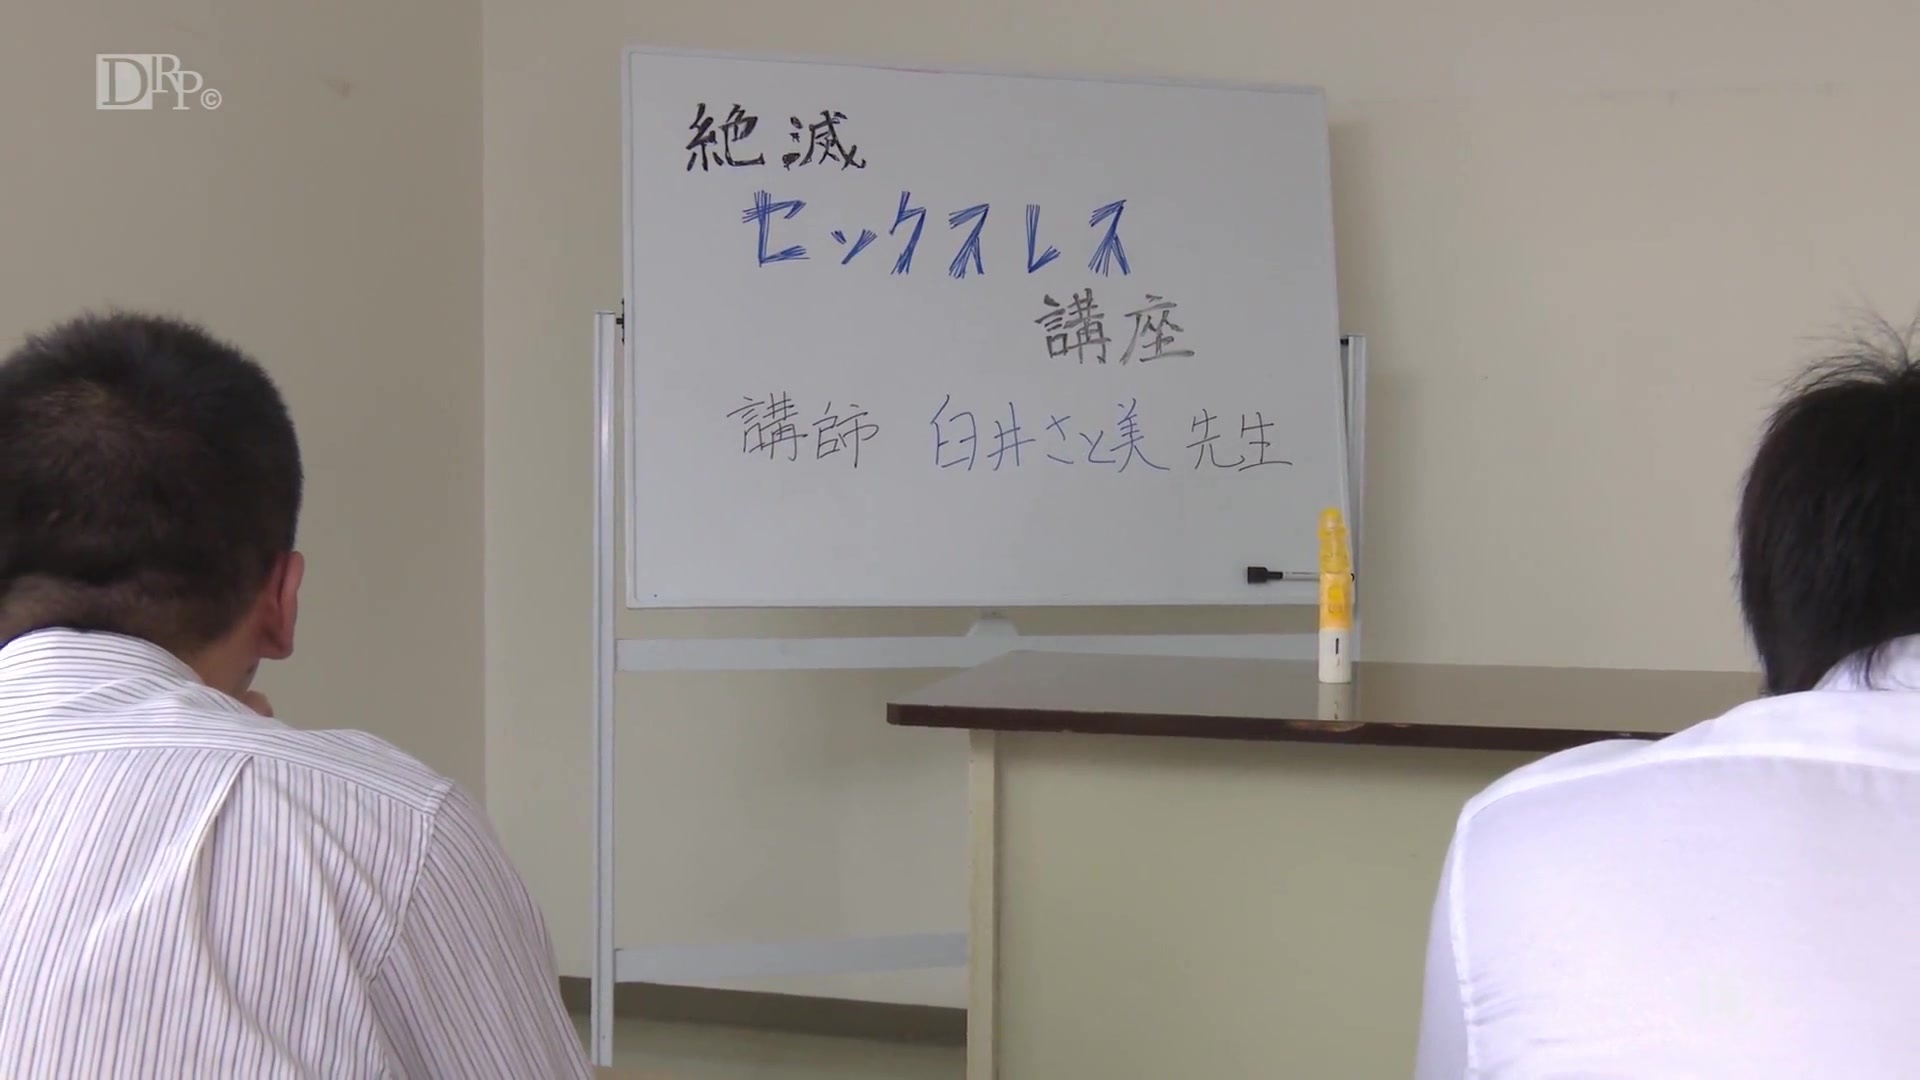 DRP©
絶滅
セックスレス
講座
講師 白井さと美 先生